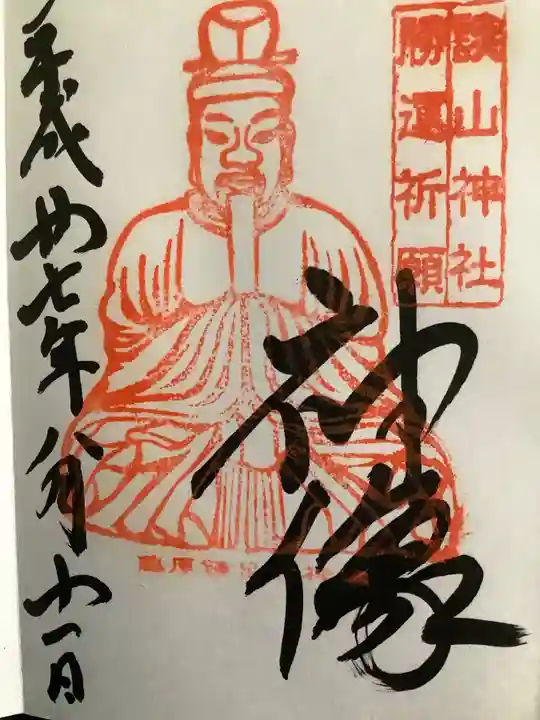 談山神社
勝運祈願
神像
平成廿七年 月 一日
藤原鎌